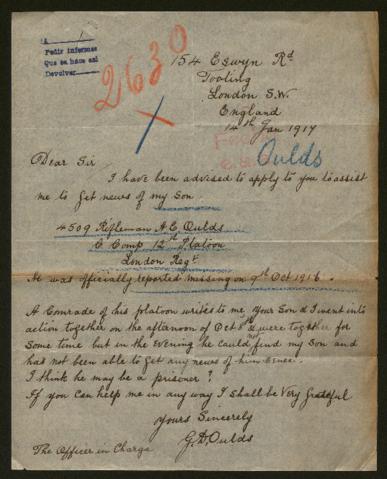 A
Pedir informes
Que se hace asi
Devolver
2630
154 Eswyn Rd
Tooting
London S.W.
England
14th Jan 1917
Oulds
Dear Sir
I have been advised to apply to you to assist
me to get news of my Son
4509 Rifleman A.E. Oulds
C Comp 12th Platoon
London Regt.
He was officially reported missing on 9th Oct 1916.
A Comrade of his platoon writes to me, your Son & I went into
action together on the afternoon of Oct 8th & were together for
some time but in the Evening he could find my Son and
has not been able to get any news of him since.
I think he may be a prisoner?
If you can help me in any way I shall be Very Grateful
Yours Sincerely
G.D. Oulds
The Officer in Charge